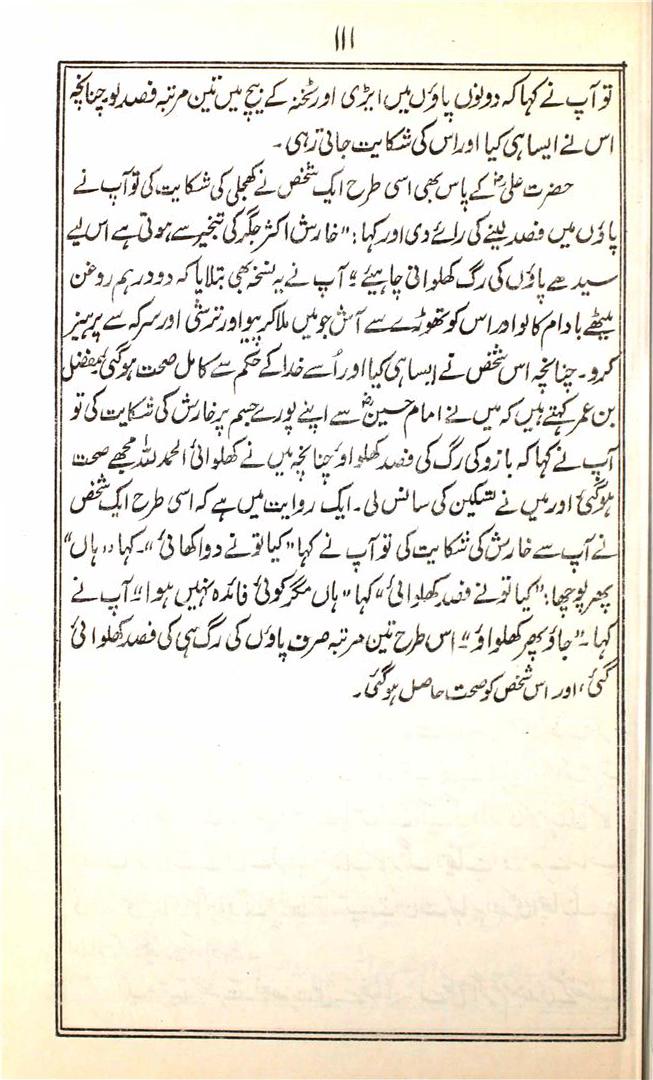 ۱۱۱
تو آپ نے کہا کہ دونوں پاؤں میں ایڑی اور ٹخنہ کے بیچ میں تین مرتبہ فصد لو چنانچہ
اس نے ایسا ہی کیا اور اس کی شکایت جاتی رہی۔
حضرت علیؓ کے پاس بھی اسی طرح ایک شخص نے کھجلی کی شکایت کی تو آپ نے
پاؤں میں فصد لینے کی رائے دی اور کہا: "خارش اکثر جگر کی تبخیر سے ہوتی ہے اس لیے
سیدھے پاؤں کی رگ کھلوانی چاہیئے"۔ آپ نے یہ نسخہ بھی بتلایا کہ دو درہم روغن
میٹھے بادام کا لو اور اس کو تھوڑے سے آش جو میں ملا کر پیو اور ترشی اور سرکہ سے پرہیز
کرو۔ چنانچہ اس شخص نے ایسا ہی کیا اور اُسے خدا کے حکم سے کامل صحت ہو گئی، مفضل
بن عمر کہتے ہیں کہ میں نے امام حسینؓ سے اپنے پورے جسم پر خارش کی شکایت کی تو
آپ نے کہا کہ بازو کی رگ کی فصد کھلواؤ چنانچہ میں نے کھلوائی الحمد للہ مجھے صحت
ہو گئی اور میں نے تسکین کی سانس لی۔ ایک روایت میں ہے کہ اسی طرح ایک شخص
نے آپ سے خارش کی شکایت کی تو آپ نے کہا "کیا تو نے دوا کھائی"۔ کہا "ہاں"
پھر پوچھا: "کیا تو نے فصد کھلوائی" کہا "ہاں مگر کوئی فائدہ نہیں ہوا" آپ نے
کہا۔ "جاؤ پھر کھلواؤ"۔ اس طرح تین مرتبہ صرف پاؤں کی رگ ہی کی فصد کھلوائی
گئی، اور اس شخص کو صحت حاصل ہو گئی۔